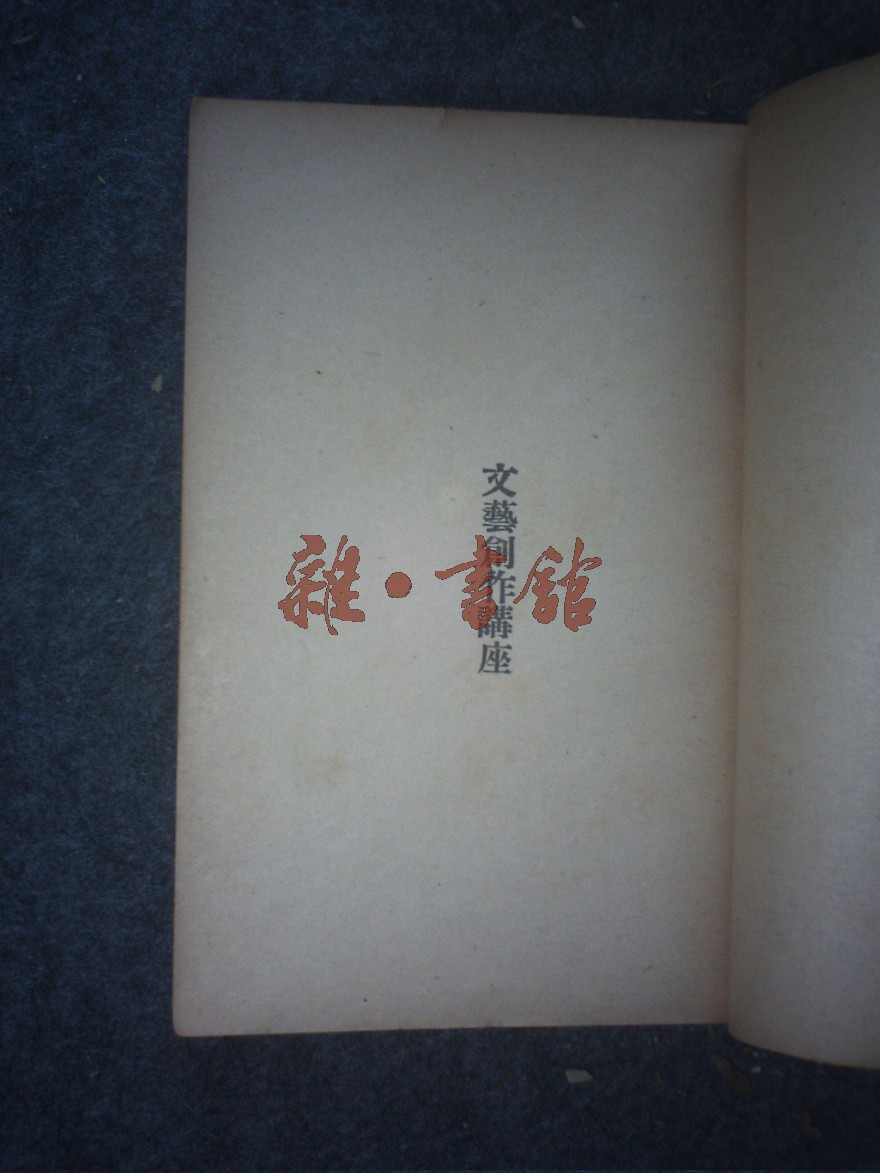 文藝創作講座
雜·書館